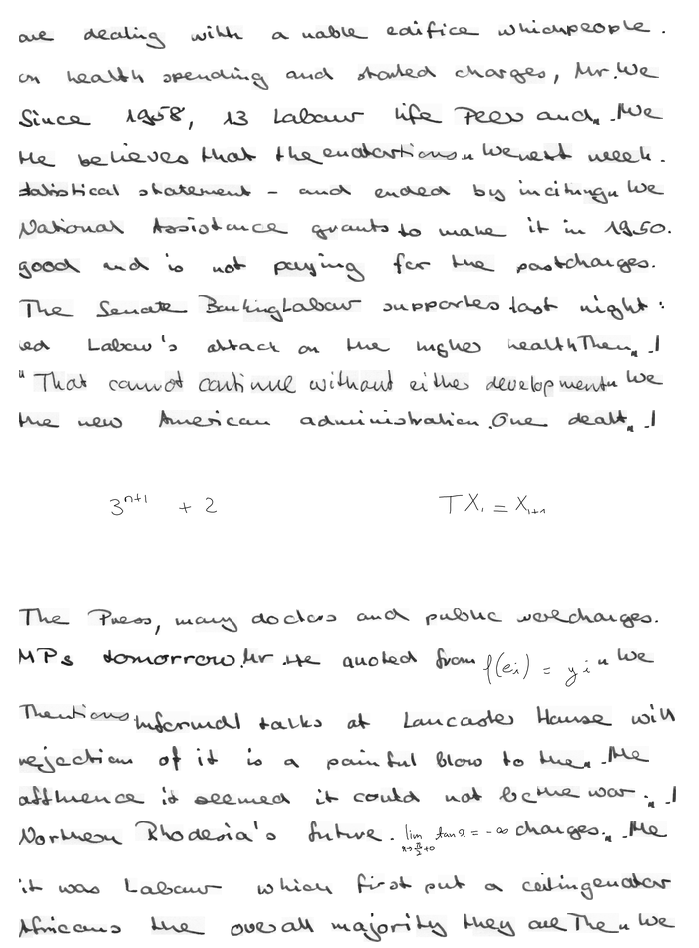 are dealing with a noble edifice whichpeople.
on health spending and started charges, Mr. We
Since 1958, 13 Labour life Peers and " . We
He believes that the " We next week.
statistical statement - and ended by inciting " We
National Assistance grants to make it in 1950.
good and is not paying for the postcharges.
The Senate Banking Labour supportes last night :
ed Labour's attack on the higher health Then " . I
" That cannot continue without either development " We
the new American administration. One dealt " . I
3^{n+1} + 2
T X_i = X_{i+1}
The Press, many doctors and public werecharges.
MPs tomorrow. Mr . He quoted from f(e_i) = y_i " We
informal talks at Lancaster House will
rejection of it is a painful blow to the " . He
affluence it seemed it could not be the war . . I
Northern Rhodesia's future. lim tan = -∞ charges. . He
it was Labour which first put a
Africans the overall majority they are The " We